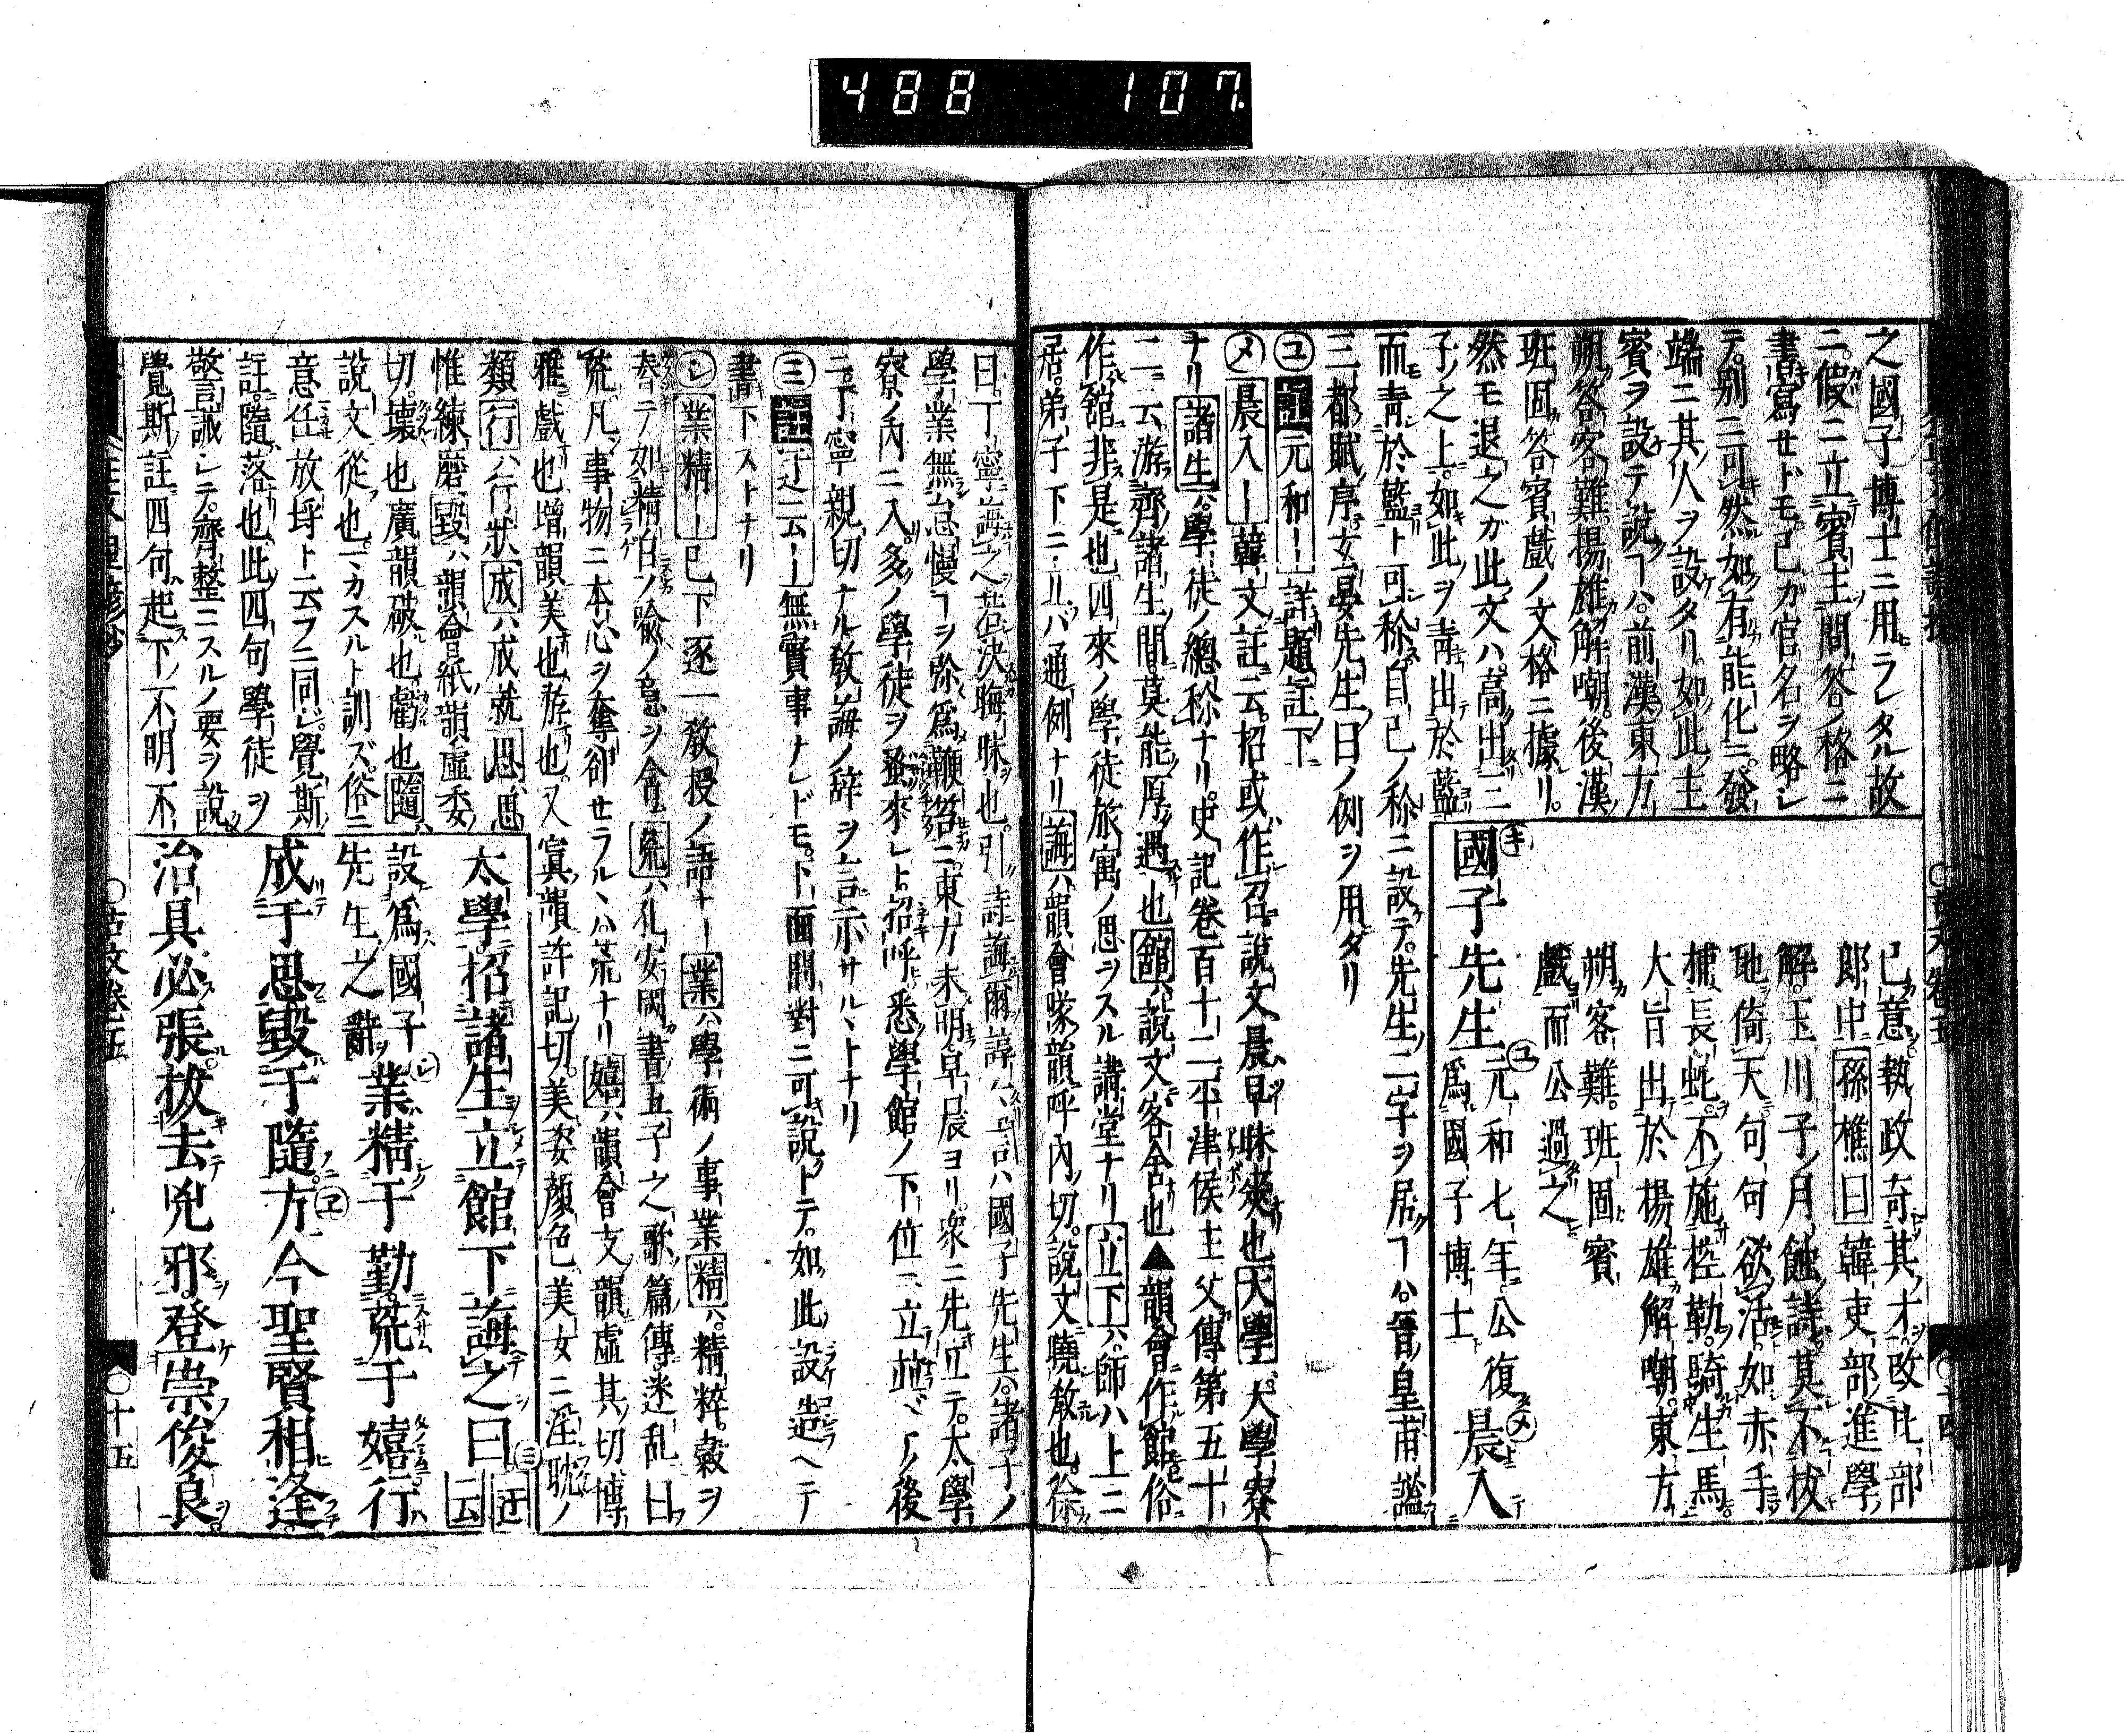 488 107
之國子博士ニ用ラレタル故
ニ假ニ立賓主問答ノ格ニ
書寫セドモ己ガ官名ヲ略シ
テ別ニ可然如有能化ニ發
端ニ其人ヲ設タリ如此主
賓ヲ設テ說フハ前漢東方
朔答客難揚雄解嘲後漢
班固答賓戲ノ文格ニ據リ
然モ退之ガ此文ハ高出二
子之上如此ヲ靑出於藍
而靑於藍ト可稱自己ノ稱ニ設テ先生二字ヲ居フハ晉皇甫謐
三都賦序玄晏先生曰ノ例ヲ用タリ
己意執政奇其才改比部
郎中孫樵曰韓吏部進學
解玉川子月蝕詩莫不拔
地倚天句句欲活如赤手
捕長蛇不施控勒騎生馬
大旨出於揚雄解嘲東方
朔客難班固賓
戲而公過之
國子先生元和七年公復
爲國子博士晨入
ユ註元和ー詳題註下
メ晨入ー韓文註云招或作召說文晨早昧爽也大學大學寮
ナリ諸生ハ學徒ノ總稱ナリ史記卷百十二平津侯主父傳第五十
二ニ云游齊諸生間莫能厚遇也館說文客舍也▲韻會作館俗
作舘非是也四來ノ學徒旅寓ノ思ヲスル講堂ナリ立下ハ師ハ上ニ
居弟子下ニ立ハ通例ナリ誨ハ韻會隊韻呼內切說文曉敎也徐
曰丁寧誨之若決晦昧也引詩誨爾諄諄曰ハ國子先生ハ諸子ノ
學業無怠慢フヲ弥爲鞭策ニ東方未明早晨ヨリ衆ニ先立テ太學
寮ノ內ニ入多ノ學徒ヲ蚤來レト招呼悉學館ノ下位ニ立並ベノ後
ニ丁寧親切ナル敎誨ノ辞ヲ言示サルヽトナリ
ミ註迂云ー無實事ナレドモ下面開對ニ可說トテ如此設造ヘテ
書下ストナリ
シ業精ー已下逐一敎授ノ語ナー業ハ學術ノ事業精ハ精粹穀ヲ
舂テ如精白ノ喩ノ意ヲ含荒ハ孔安國書五子之歌篇傳迷乱曰
荒凡事物ニ本心ヲ奪卻セラルヽハ荒ナリ嬉ハ韻會支韻虛其切博
雅戲也增韻美也游也又寘韻許記切美姿顏色美女ニ淫耽ノ
類行ハ行狀成ハ成就思思
惟練磨毀ハ韻會紙韻虛委
切壞也廣韻破也虧也隨ハ
說文從也マカスルト訓ズ俗ニ
意任放埒ト云フニ同シ覺斯
註隨落也此四句學徒ヲ
警誡シテ齊整ニスルノ要ヲ說
覺斯註四句起下不明不
太學招諸生立館下誨之曰迂云
設爲國子
先生之辭業精于勤荒于嬉行
成于思毀于隨方今聖賢相逢
治具必張拔去兇邪登崇俊良
○古文卷五
○十五